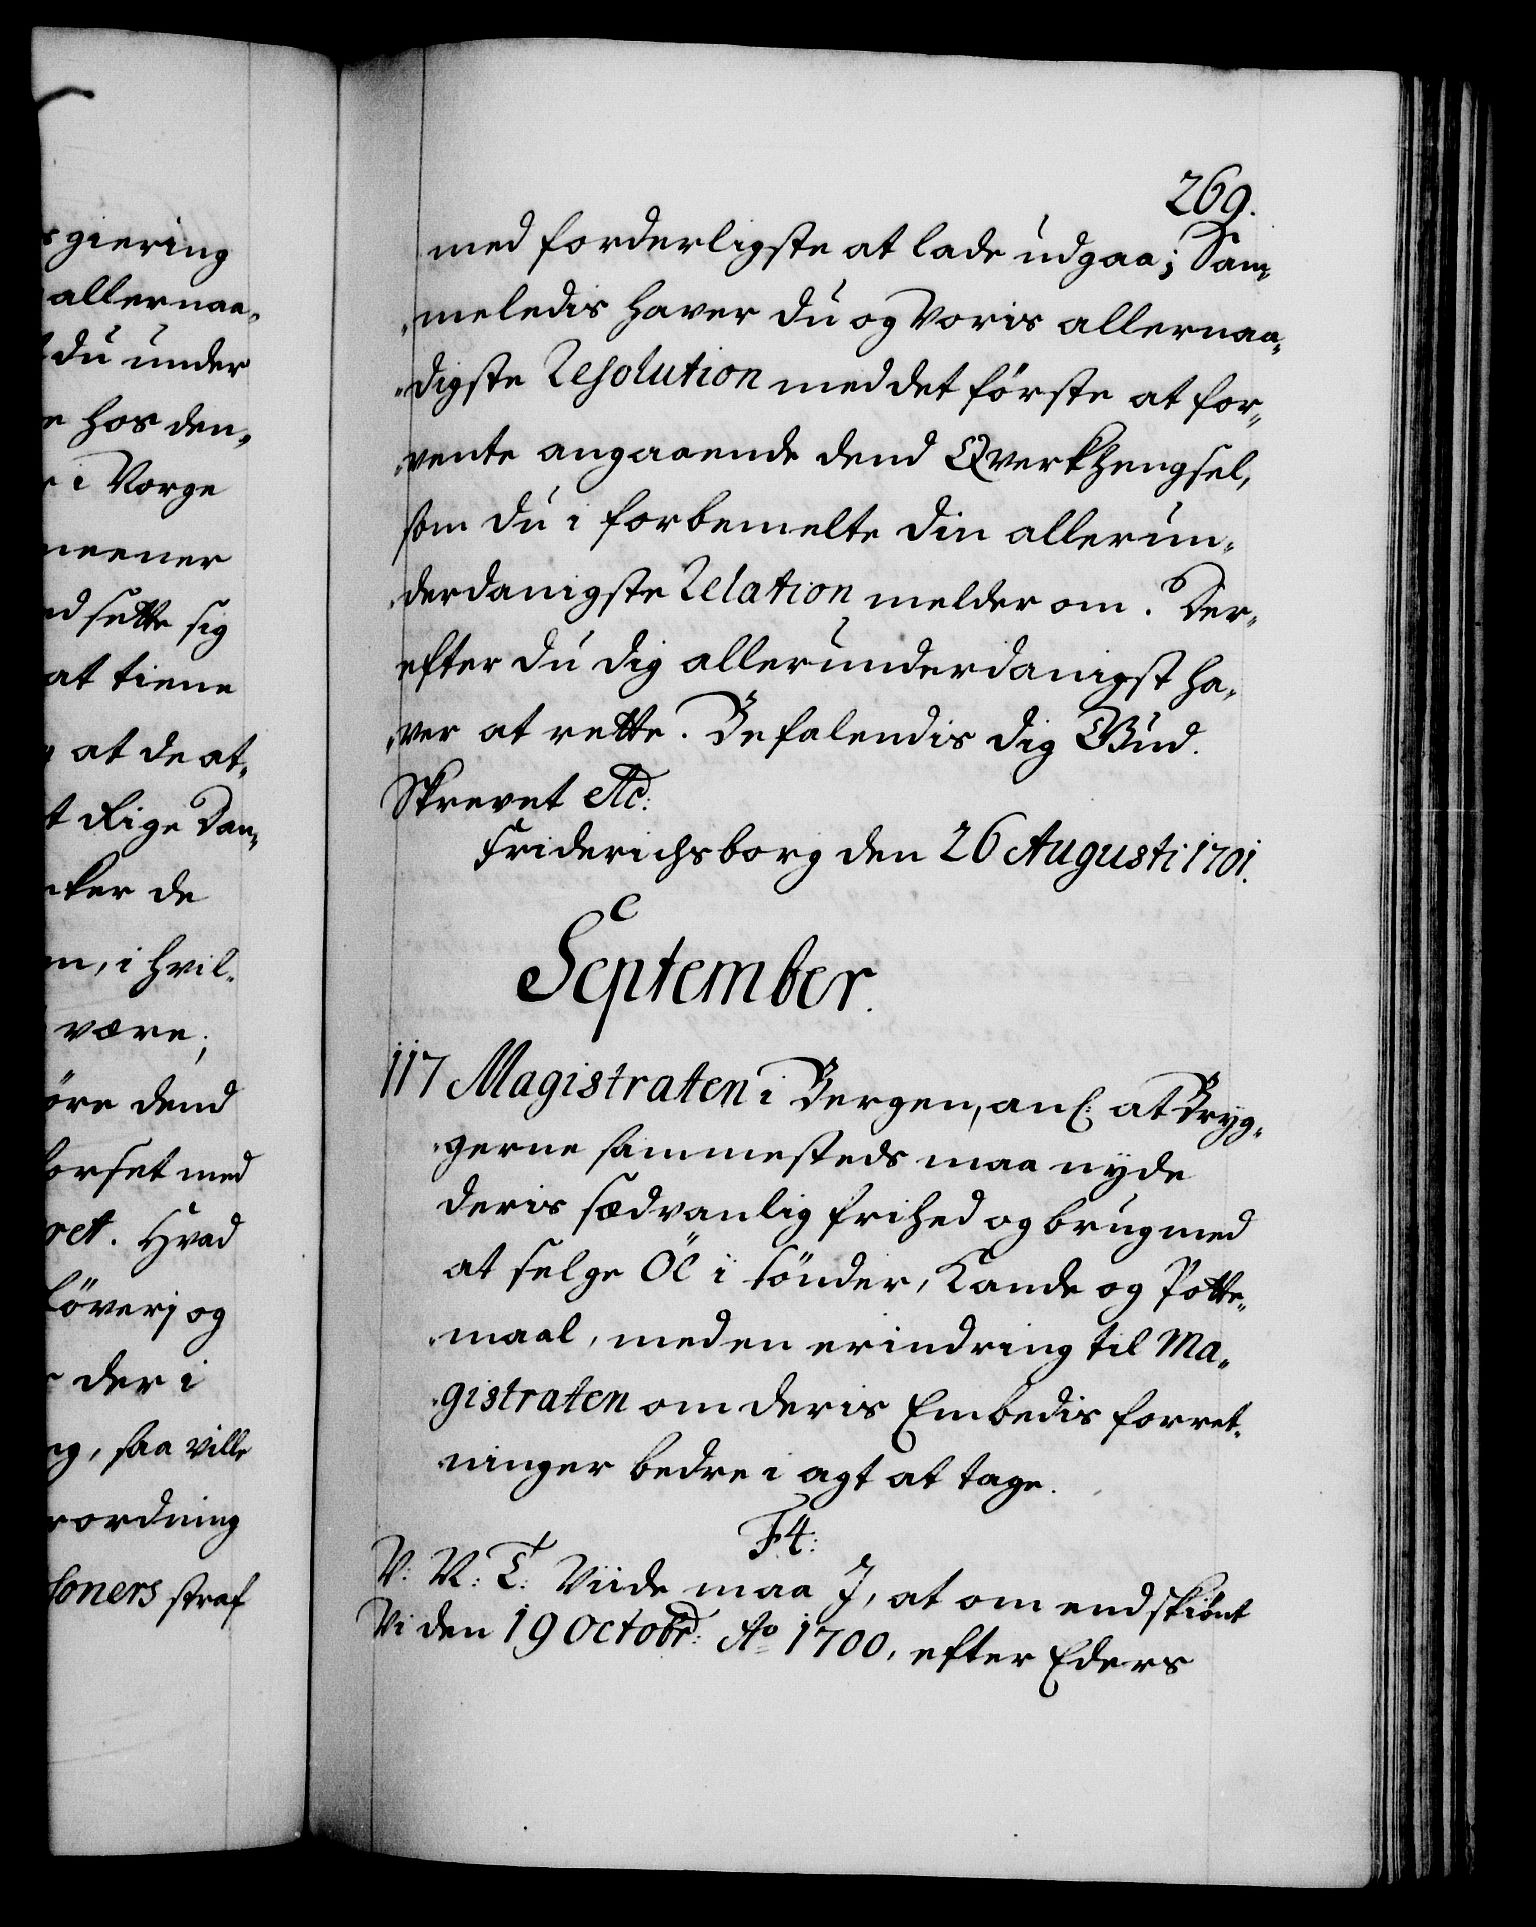 giering
allernaa-
du under
hos den-
i Norge
meener
sette sig
at tiene
at de at-
Rige Dan-
de
, i hvil-
være;
dend
med
ret. Hvad
og
der i
, saa ville
ordning
soners straf
269.
med forderligste at lade udgaa; Sam-
meledis haver du og Voris allernaa-
digste Resolution med det förste at for-
vente angaaende dend Qverkhengsel,
som du i forbemelte din allerun-
derdanigste Relation melder om. Der-
efter du dig allerunderdanigst ha-
ver at rette. Befalendis dig Gud.
Skrevet etc:
Friderichsborg den 26 Augusti 1701.
September.
117 Magistraten i Bergen, anl: at Bryg-
gerne sammesteds maa nyde
deris sædvanlig frihed og brug med
at selge Öl i tönder, Kande og Potte-
maal, med en erindring til Ma-
gistraten om deris Embedis forret-
ninger bedre i agt at tage.
F4:
V: G: T: Viide maa J, at om endskiönt
Vi den 19 Octobr: Ao 1700, efter Eders